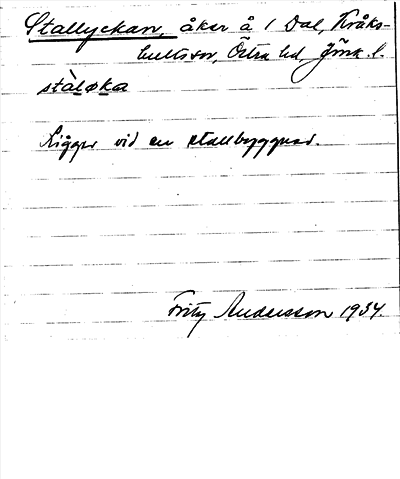 Stallyckan, åker å 1 Dal, Kråks-
hults sn, Östra hd, Jönk. l.
stàløka
Ligger vid en stallbyggnad.
Fritz Andersson 1934.